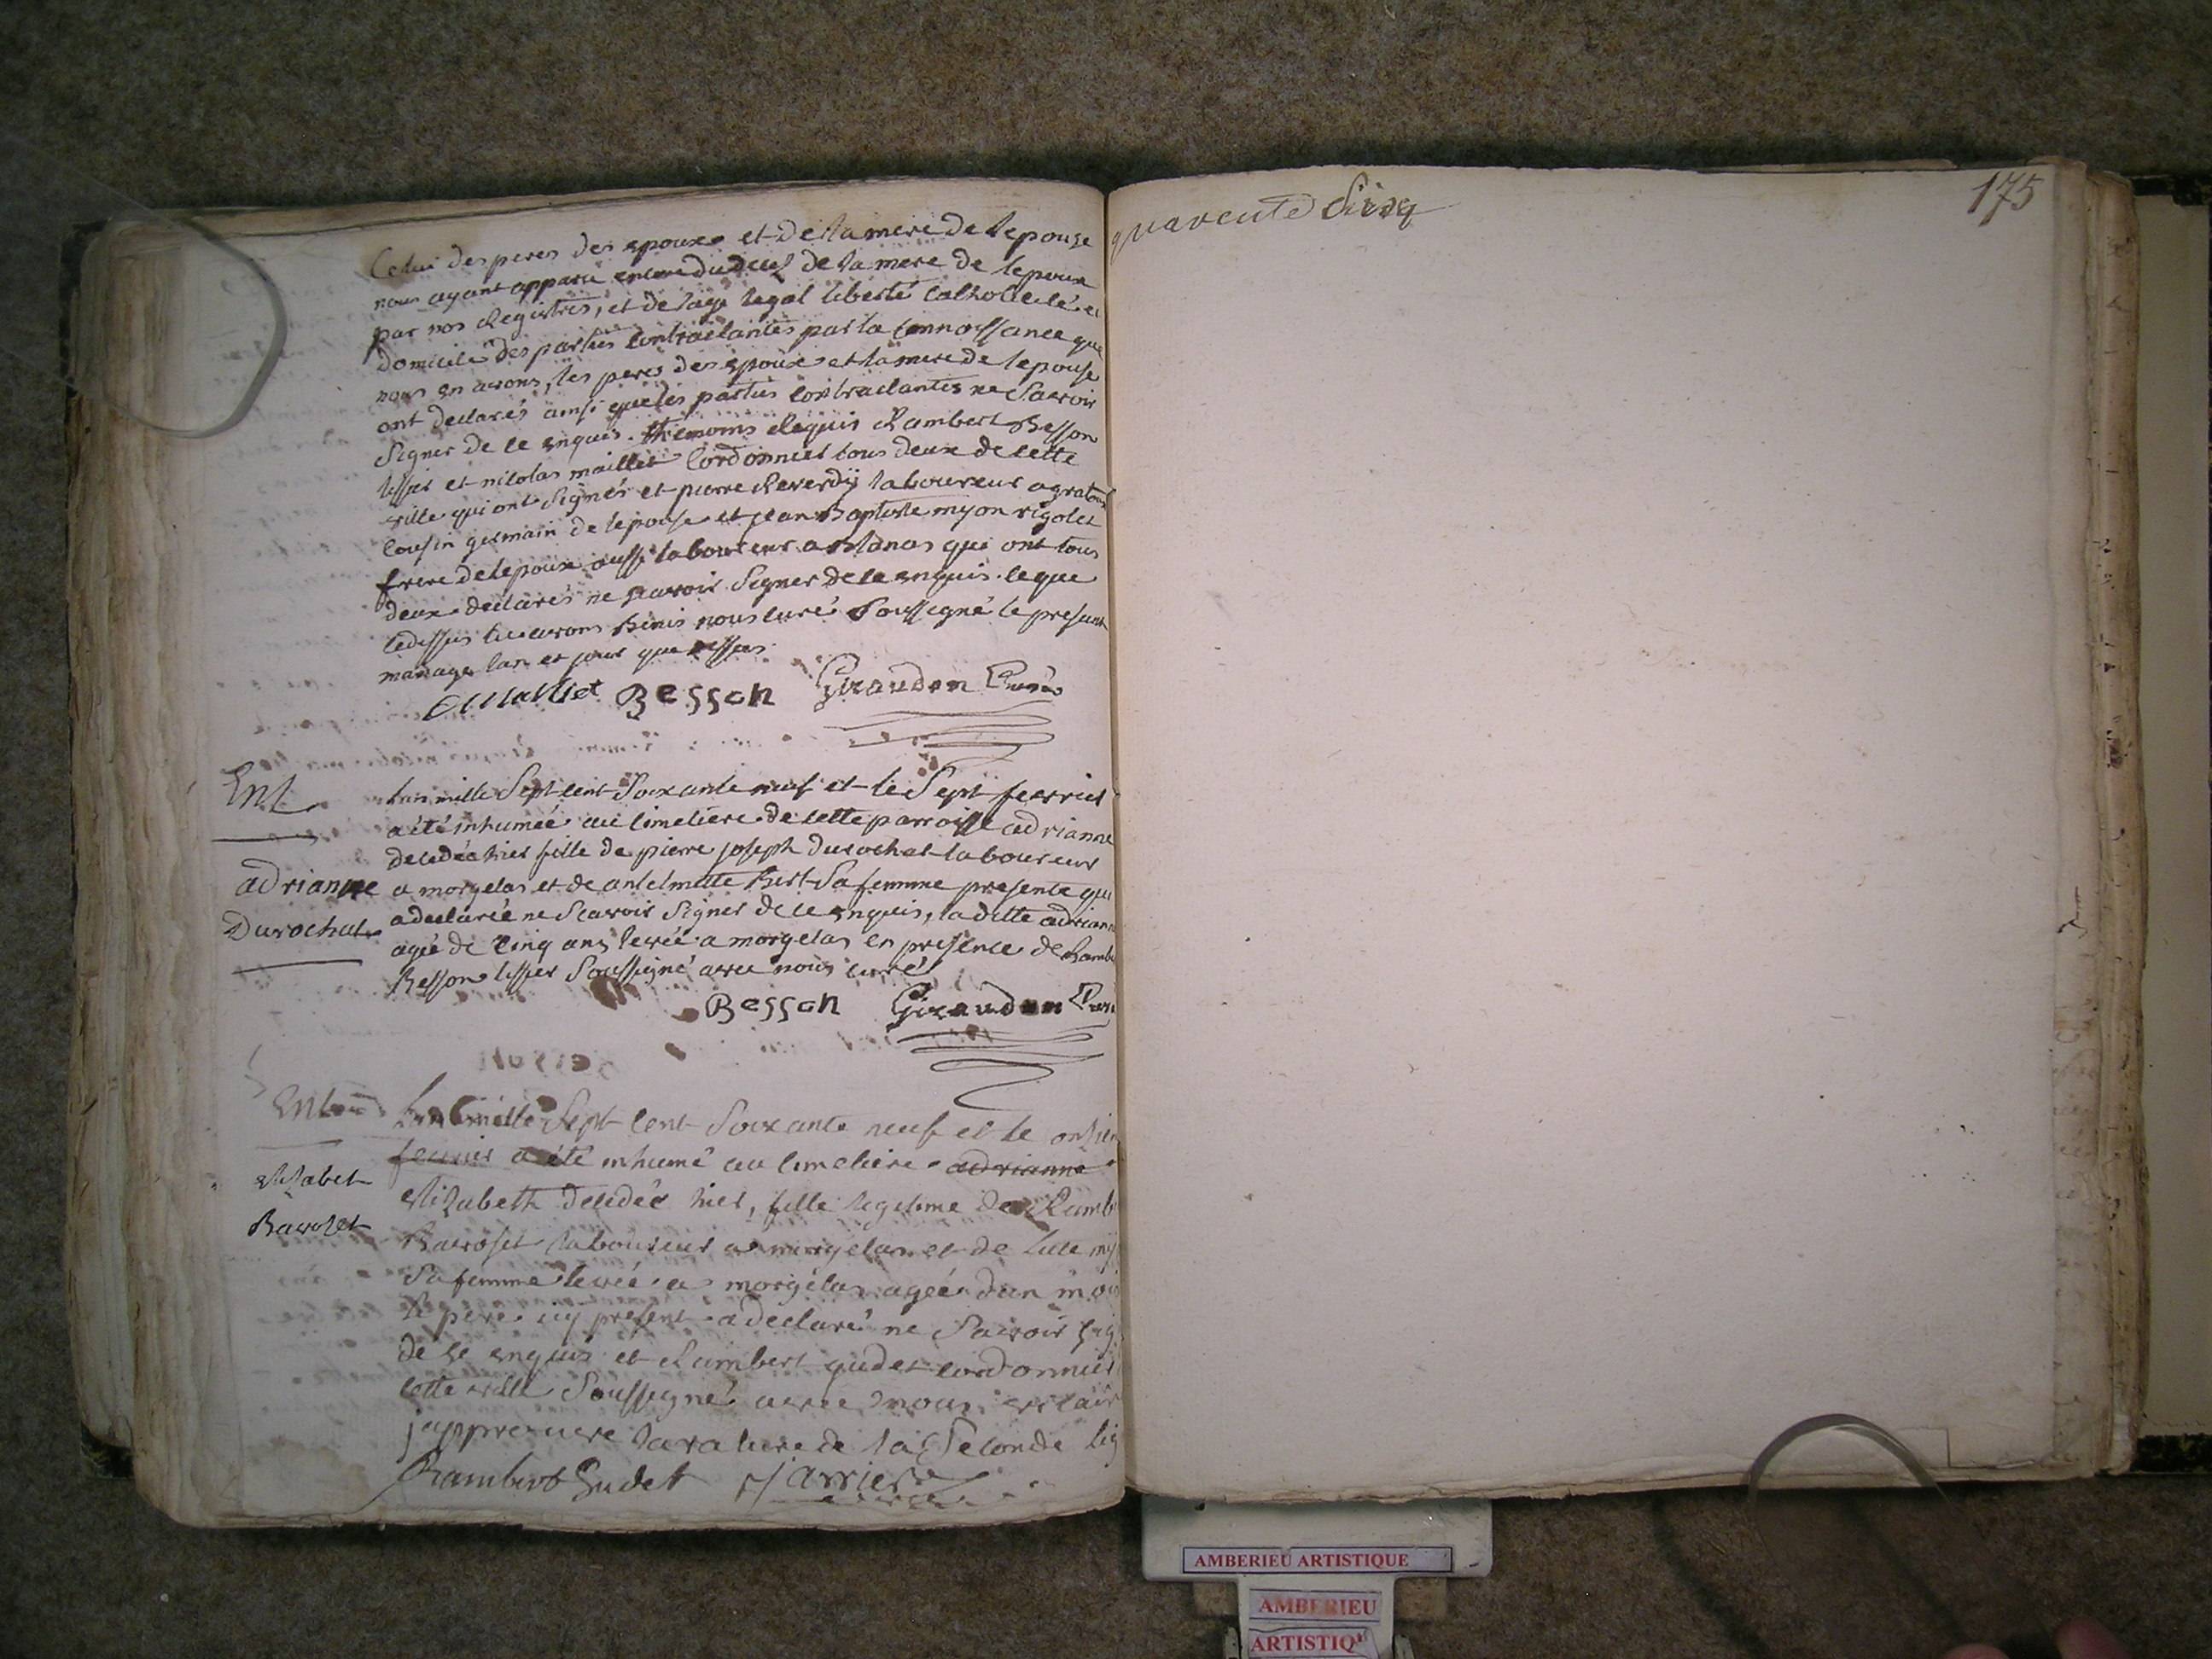 Celui des peres des epoux et de la mere de lepouse
nous ayant apparu encore du decès de la mere de lepoux
par nos Registres, et de lage legal liberté catholicité et
domicile des parties contractantes par la connoissance que
nous en avons, les peres des epoux et la mere de lepouse
ont declarés ainsi que les parties contractantes ne Savoir
Signer de ce enquis. themoins Requis Rambert Besson
tissier et nicolas maillet Cordonnier tous deux de cette
ville qui ont Signés et pierre Reverdÿ laboureur a gratoux
cousin germain de lepouse et jean Baptiste myon rigolet
frere de lepoux aussi laboureur a Blanas qui ont tous
deux declarés ne scavoir Signer de ce enquis. ce que
cedessus lu avons Benis nous curé Soussigné le present
mariage lan et jour que dessus.
Maillet Besson Giraudon Curé
Ent
adrianne
Durochat
Lan mille Sept cent Soixante neuf et le Sept fevrier
a été inhumée au cimetiere de cette parroisse adrianne
decedée hier fille de pierre joseph durochat laboureur
a morgelas et de antelmette Bert Sa femme presente qui
a declarée ne Scavoir Signer de ce enquis, la ditte adrianne
agée de Cinq ans levée a morgelas en presence de Rambe
Besson tissier Soussigné avec nous curé
Besson Giraudon Curé
Ent
elizabet
Ravozet
Lan mille Sept cent Soixante neuf et le onzien
fevrier a été inhumé au cimetiere adrianne
elizabeth decedée hier, fille legitime de Rambe
Ravoset laboureur a morgelas et de Luce my
Sa femme levée a morgelas agée dun mois
le pere icy present a declaré ne Savoir sig
de ce enquis et Rambert gudet cordonnier
cette ville Soussigné avec nous vicaire
japprouve la rature de la Seconde lig
Rambert Gudet Jarrier
quarente Cinq
175
AMBERIEU ARTISTIQUE
AMBERIEU
ARTISTIQ